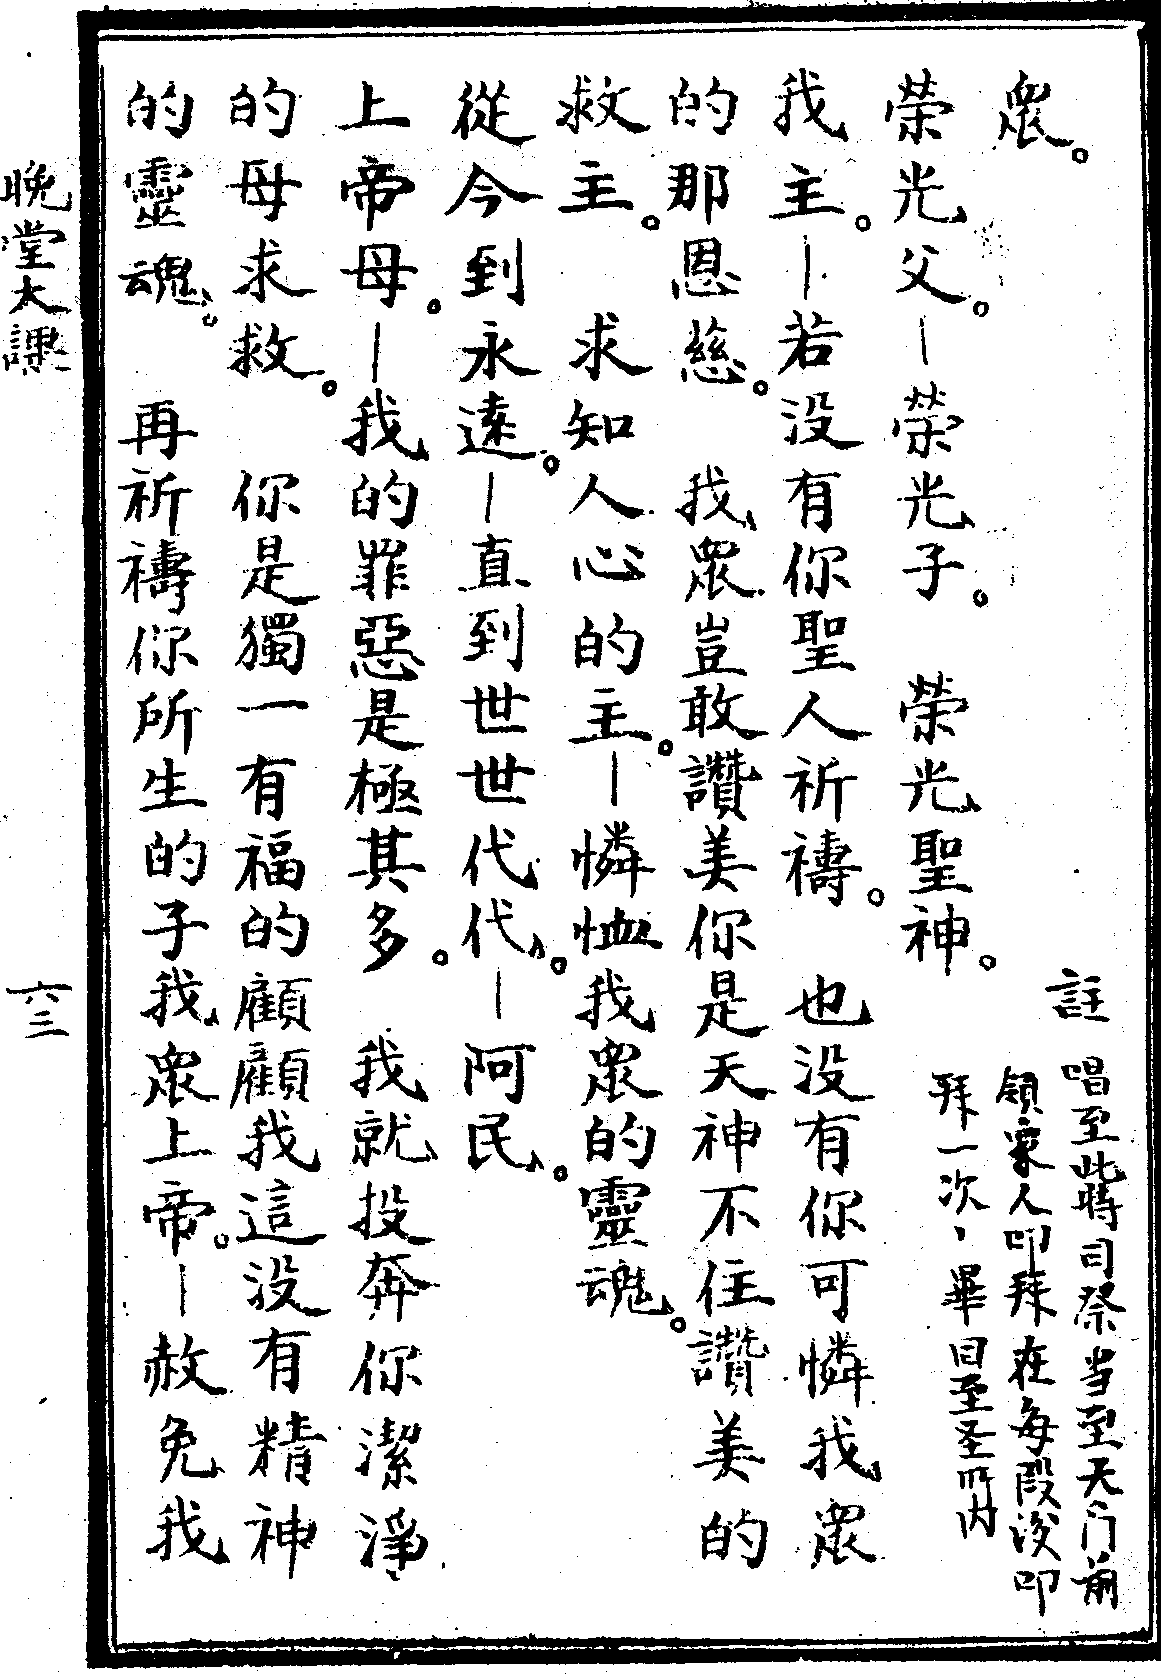 眾。
註 唱至此時司祭当至天门前
領众人叩拜在每段後叩
拜一次、畢曰至圣所内
榮光父。—榮光子。 榮光聖神。
我主。—若没有你聖人祈禱。 也没有你可憐我眾
的那恩慈。 我眾豈敢讚美你是天神不住讚美的
救主。 求知人心的主。—憐恤我眾的靈魂。
從今到永遠。—直到世世代代。—阿民。
上帝母。—我的罪惡是極其多。 我就投奔你潔淨
的母求救。 你是獨一有福的顧顧我這没有精神
的靈魂。 再祈禱你所生的子我眾上帝。—赦免我
晚堂大課
六三